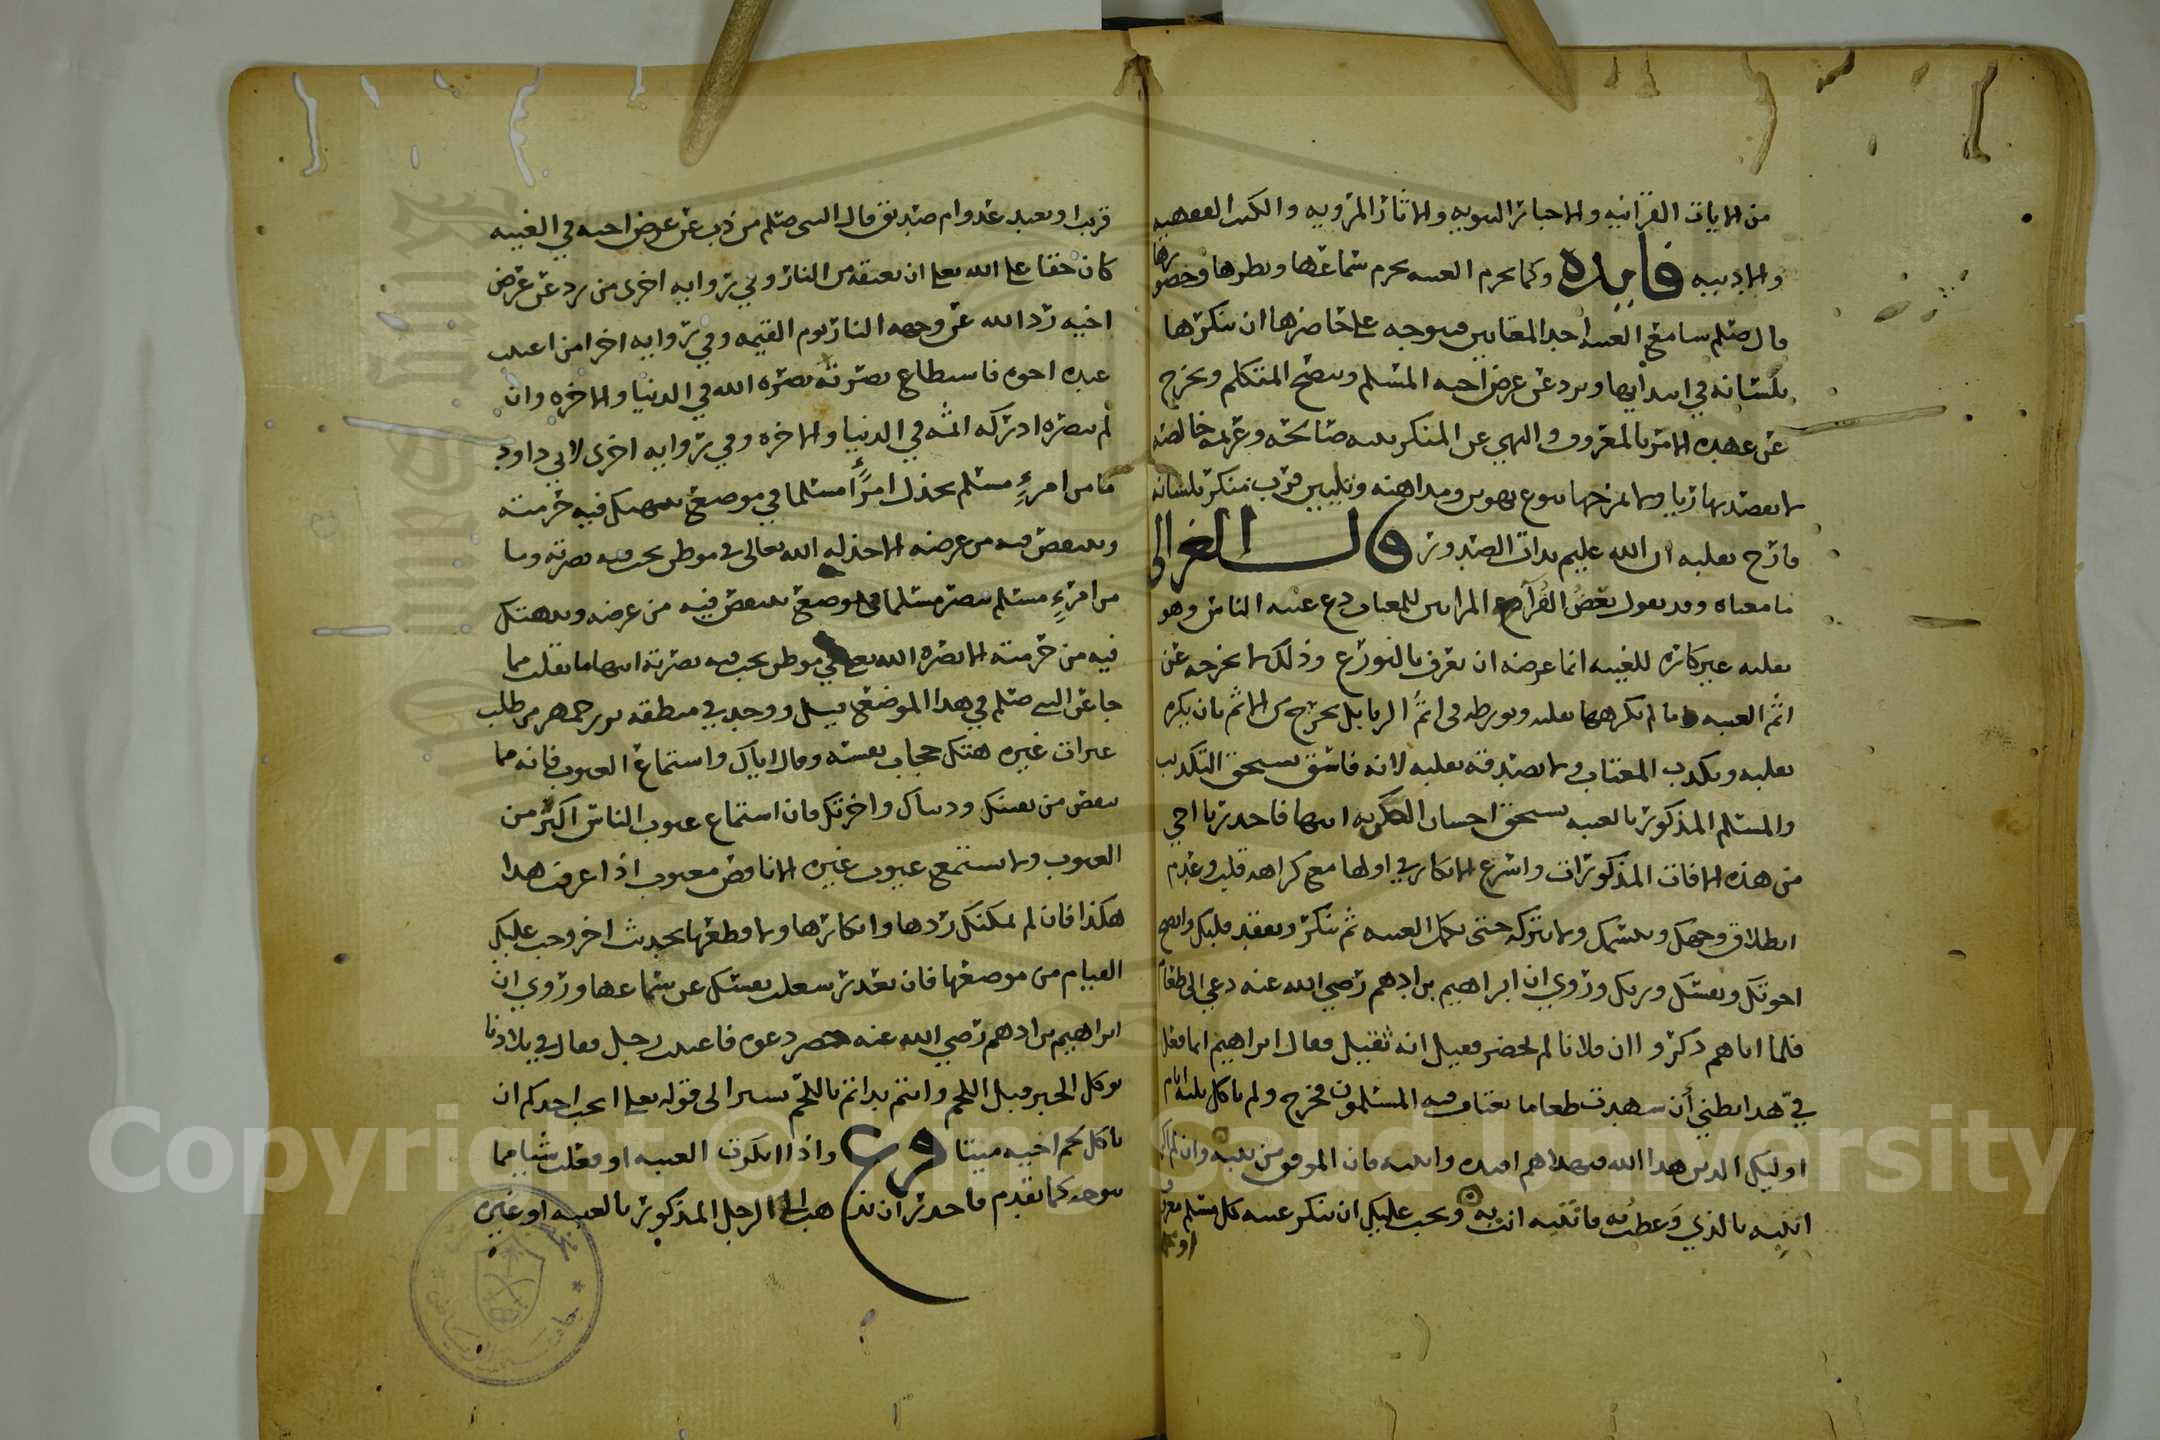 من الايات القرانيه والاخبار النبويه والاثار المرويه والكتب الفقهيه
والادبيه فايده وكما يحرم الغيبه يحرم سماعها ونظرها وحضورها
قال صلم سامع الغيبه احد المغتابين فيتوجه على حاضرها ان ينكرها
بلسانه في ابتدايها ويرد عن عرض اخيه المسلم وينصح المتكلم ويخرج
عن عهده الامر بالمعروف والنهي عن المنكر بنيه صالحة وعزيمه خالصه
لا يقصد بها ريا ولا يمزجها بنوع تهوين ومداهنه وتلبيس فرب منكر بلسانه
فارح بقلبه ان الله عليم بذات الصدور قال الغزالي
ما معناه وقد يقول بعض القرآ المرايين للمغتاب دع غيبه الناس وهو
بقلبه غير كاره للغيبه انما غرضه ان يعرف بالتورع وذلك لا يخرجه عن
اثم الغيبه ما لم يكرهها بقلبه ويورطه في اثم الريا بل يخرج من الاثم بان يكره
بقلبه ويكذب المغتاب ولا يصدقه بقلبه لانه فاسق يستحق التكذيب
والمسلم المذكور بالغيبه يستحق احسان الظن به انتهى فاحذر يا اخي
من هذه الافات المذكورات واسرع الانكار في اولها مع كراهة قلب وعدم
انطلاق وجهك وتبسمك ولا تتركه حتى يكمل الغيبه ثم تنكر وتفقد قلبك وانصح
اخوتك ونفسك وربك وروي ان ابراهيم بن ادهم رضي الله عنه دعي الى طعام
فلما اتاهم ذكروا ان فلانا لم يحضر فقيل انه ثقيل فقال ابراهيم انما فعل
في هذا بطني أن شهدت طعاما يغتاب فيه المسلمون فخرج ولم ياكل ثلثه ايام
اوليك الذين هدا الله فبهداهم اقتده وانتبه فان الموفق من تنبه وان لم
انتبه بالذي وَعظت به فانتبه انت به ويجب عليك ان تنكر غيبه كل مسلم
قريب او بعيد عدو ام صديق قال النبي صلم من ذب عن عرض اخيه في الغيبه
كان حقا على الله تعلى ان يعتقه من النار وفي روايه اخرى من رد عن عرض
اخيه رد الله عن وجهه النار يوم القيمه وفي روايه اخرا من اغتيب
عنده اخوه فاستطاع نصرته نصره الله في الدنيا والاخره وان
لم ينصره ادركه اثمه في الدنيا والاخره وفي روايه اخرى لابي داود
ما من امرءٍ مسلم يخذل امرأً مسلما في موضع تنتهك فيه حرمته
وينتقص فيه من عرضه الا خذله الله تعالى في موطن يحب فيه نصرته وما
من امرءٍ مسلم ينصر مسلما في موضع ينتقص فيه من عرضه وينتهك
فيه من حرمته الا نصره الله تعلى في موطن يحب فيه نصرته انتهى ما نقلت مما
جا عن النبي صلم في هذا الموضع قيل ووجد في منطقه بزرجمهر من طلب
عثرات غيره هتك حجاب نفسه وقال اياك واستماع العيوب فانه مما
ينقص من نفسك ودنياك واخرتك فان استماع عيوب الناس اكثر من
العيوب ولا يستمع عيوب غيره الا ناقص معيوب اذا عرفت هذا
هكذا فان لم يمكنك ردها وانكارها ولا قطعها بحديث اخر وجب عليك
القيام من موضعها فان تعذر شغلت نفسك عن سماعها وروي ان
ابراهيم بن ادهم رضي الله عنه حضر دعوه فاغتيب رجل فقال في بلادنا
يوكل الخبز قبل اللحم وانتم بداتم باللحم يشير الى قوله تعلى ايحب احدكم ان
ياكل لحم اخيه ميتا فرع واذا انكرت الغيبه او فعلت شيا مما
يوجه كما تقدم فاحذر ان تذهب الى الرجل المذكور بالغيبه او غيره
Copyright © King Saud University